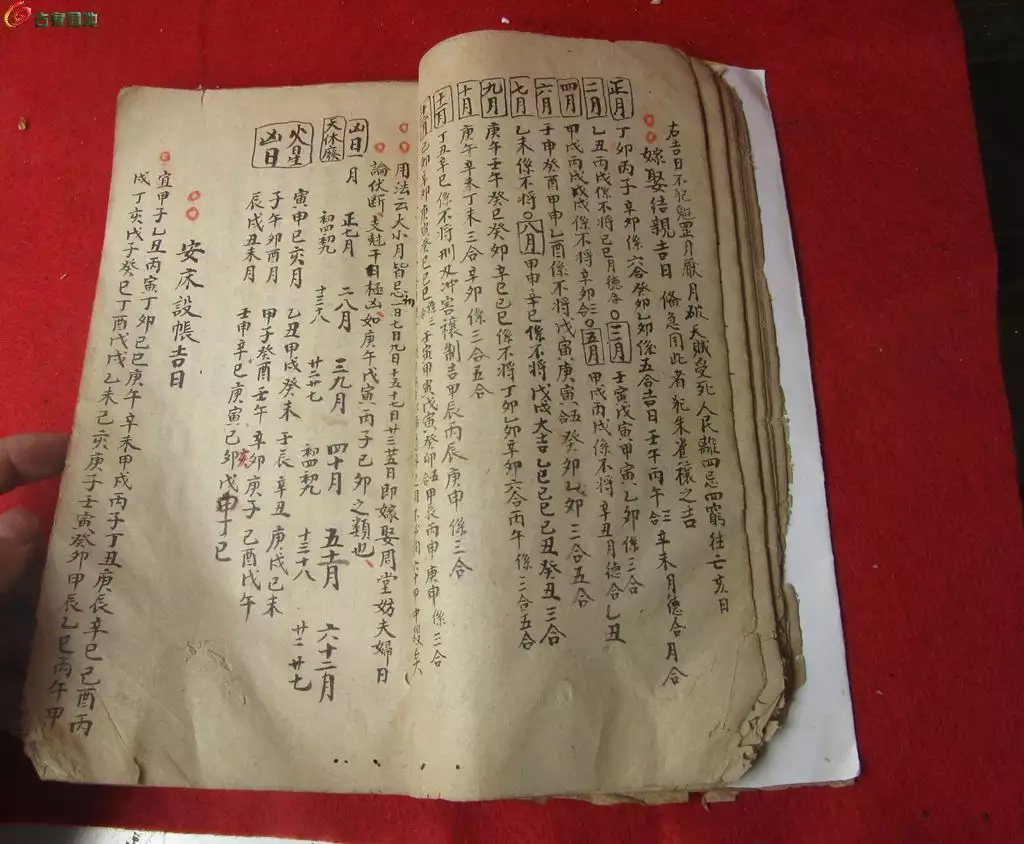 右吉日不犯魁罡月厭月破天賊受死人民離四忌四窮往亡亥日
嫁娶結親吉日 偹急用此者 犯朱雀禳之吉
正月 丁卯丙子辛卯係六合癸卯乙卯係五合吉日壬午丙午三合辛未月德合月合
二月 乙丑丙戌係不將己巳月德合○三月 壬寅戊寅甲寅乙卯係三合
四月 甲戌丙戌戊戌係不將辛卯合○五月 甲戌丙戌係不將辛丑月德合乙丑
六月 壬申癸酉甲申乙酉係不將戊寅庚寅五合癸卯乙卯三合五合
七月 乙未係不將○八月 甲申辛巳係不將戊戌大吉乙巳己巳己丑癸丑三合
九月 庚午壬午癸巳癸卯辛巳己巳係不將丁卯乙卯辛卯六合丙午係三合五合
十月 庚午辛未丁未三合辛卯係三合五合
十一月 丁丑辛巳係不將刑及冲害禳制吉甲辰丙辰庚申係三合
用法云大小月皆忌初一日七日九日十五十七日廿三廿五日即嫁娶周堂妨夫婦日
論伏断 支尅干日極凶如庚午戊寅丙子己卯之類也
凶日一月
天休廢 正七月 二八月 三九月 四十月 五十一月 六十二月
初四初九 十三十八 廿二廿七 初四初九 十三十八 廿二廿七
火星凶日 寅申巳亥月 乙丑甲戌癸未壬辰辛丑庚戌己未
子午卯酉月 甲子癸酉壬午辛卯庚子己酉戊午
辰戌丑未月 壬申辛巳庚寅己亥卯戊申丁巳
安床設帳吉日
宜甲子乙丑丙寅丁卯己巳庚午辛未甲戌丙子丁丑庚辰辛巳己酉丙
戌丁亥戊子癸巳丁酉戊戌乙未己亥庚子壬寅癸卯甲辰乙巳丙午甲